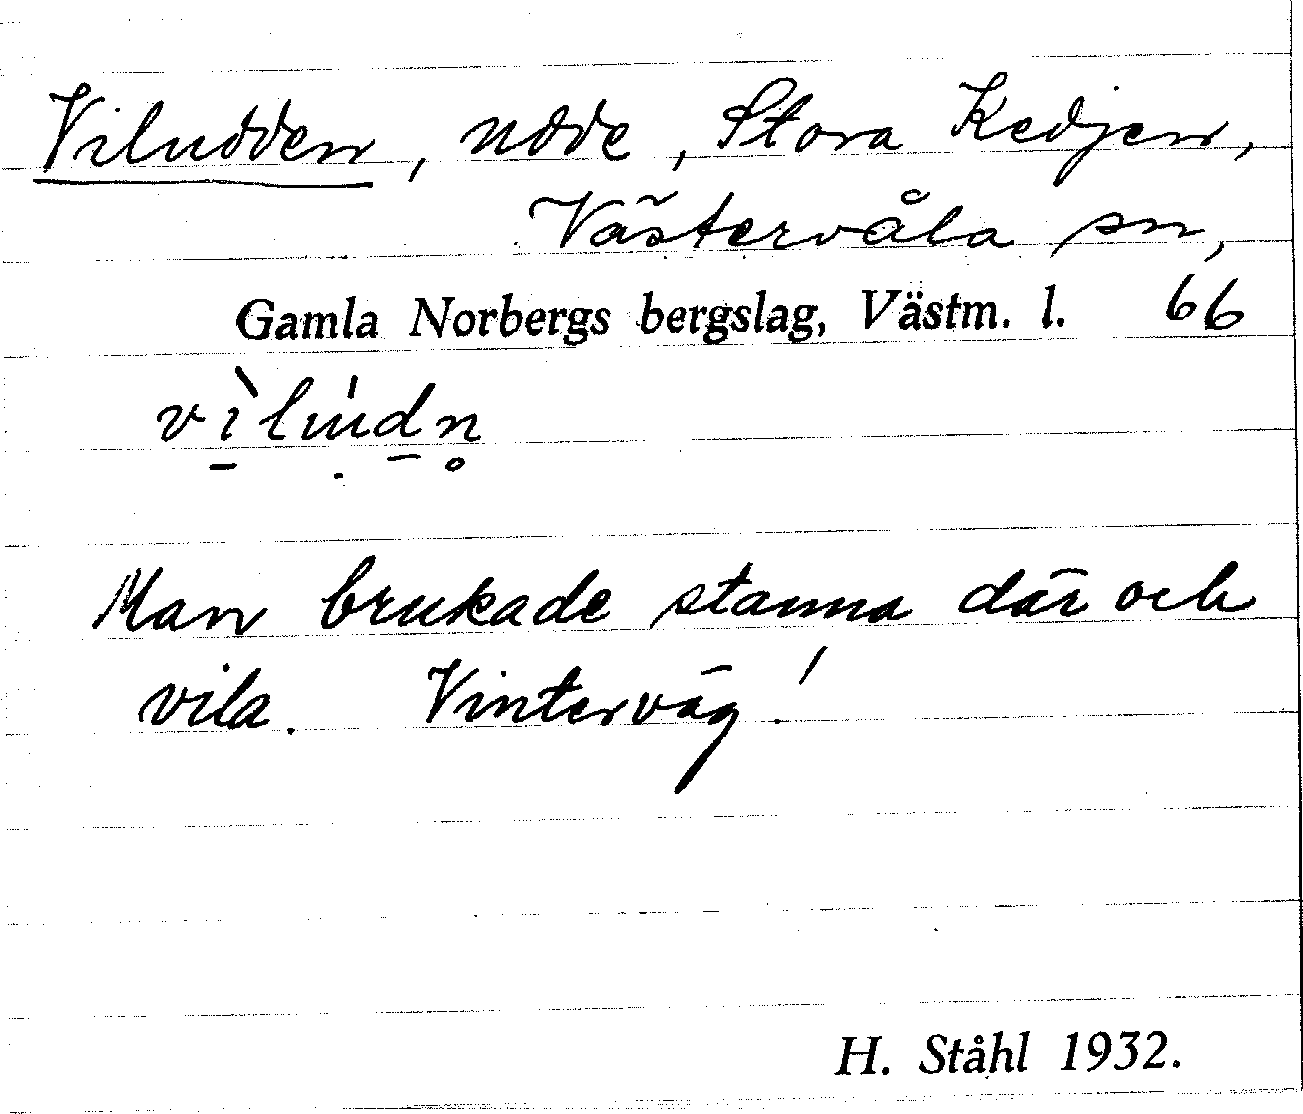 Viludden, udde, Stora Kedjen,
Västervåla sn,
Gamla Norbergs bergslag, Västm. l. 66
vìlu̍dn̥
Man brukade stanna där och
vila. Vinterväg!
H. Ståhl 1932.